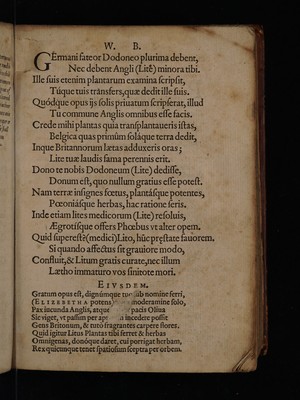 W. B.
GErmani fateor Dodoneo plurima debent,
Nec debent Angli (Litê) minora tibi.
Ille suis etenim plantarum examina scripsit,
Tûque tuis trãnsfers, quæ dedit ille suis.
Quódque opus ijs solis priuatum scripserat, illud
Tu commune Anglis omnibus esse facis.
Crede mihi plantas quia transplantaueris istas,
Belgica quas primùm solaque terra dedit,
Inque Britannorum lætas adduxeris oras;
Lite tuæ laudis fama perennis erit.
Dono te nobis Dodoneum (Lite) dedisse,
Donum est, quo nullum gratius esse potest.
Nam terræ insignes fœtus, plantásque potentes,
Pœoniásque herbas, hac ratione seris.
Inde etiam lites medicorum (Lite) resoluis,
Ægrotisque offers Phœbus vt alter opem.
Quid superest? (medici) Lito, hûc præstate fauorem.
Si quando affectus sit grauiore modo,
Confluit, & Litum gratis curate, nec illum
Lætho immaturo vos sinitote mori.
EIVSDEM.
Gratum opus est, dignúmque nomine ferri,
(ELIZEBETHA potens) moderamine solo,
Pax incunda Anglis, pacis Oliua
Sic viget, vt passim per incedere possit
Gens Britonum, & tutò fragrantes carpere flores.
Quid igitur Litus Plantas tibi ferret & herbas
Omnigenas, donóque daret, cui porrigat herbam,
Rex quicunque tenet spatiosum sceptra per orbem.